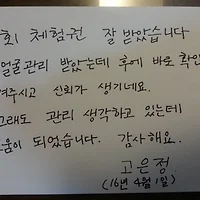 회 체험권 잘 받았습니다
얼굴관리 받았는데 후에 바로 확인
겨주시고 신뢰가 생기네요.
그래도 관리 생각하고 있는데
움이 되었습니다. 감사해요..
고은정
(16년 4월 1일)